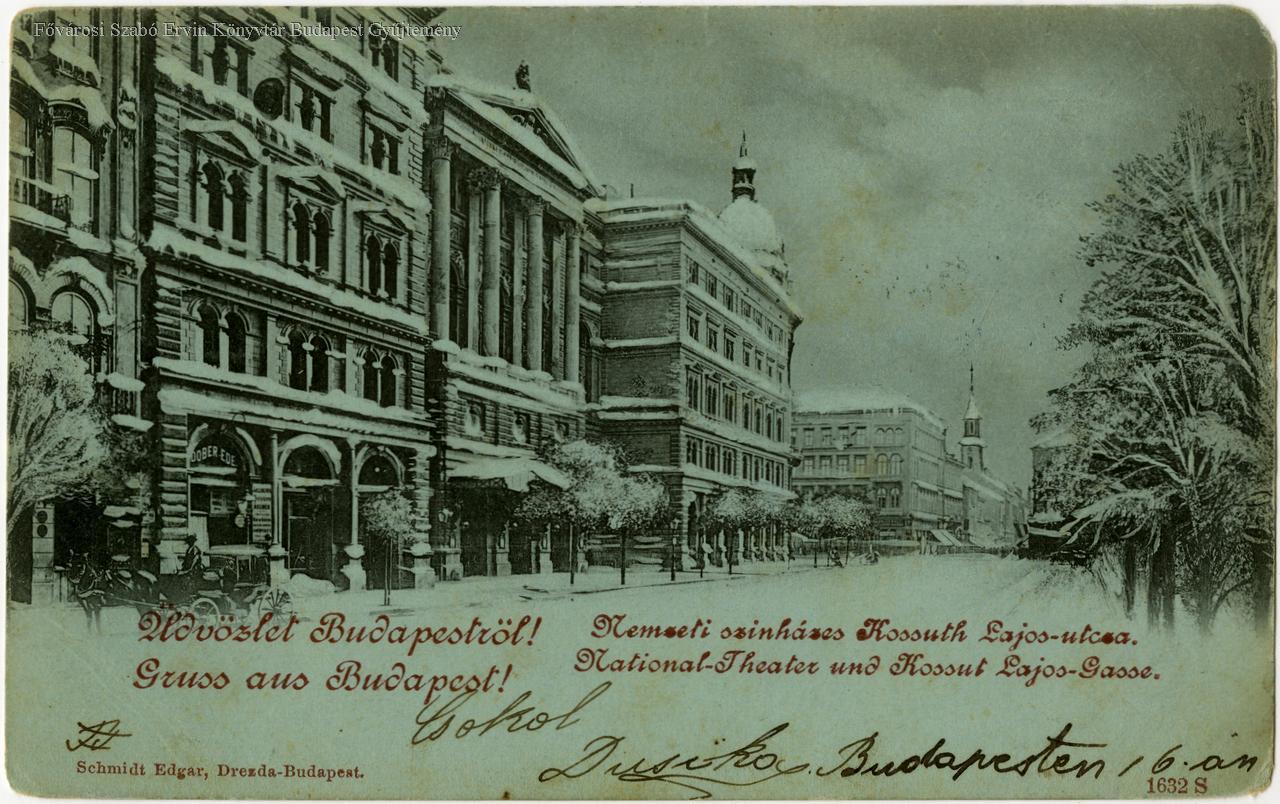 Fővárosi Szabó Ervin Könyvtár Budapest Gyűjtemény
DOBER EDE
Üdvözlet Budapestről!
Gruss aus Budapest!
Nemzeti szinházes Kossuth Lajos-utcza.
National-Theater und Kossut Lajos-Gasse.
Csokol
Dusika. Budapesten 16.án
Schmidt Edgar, Drezda-Budapest.
1632 S